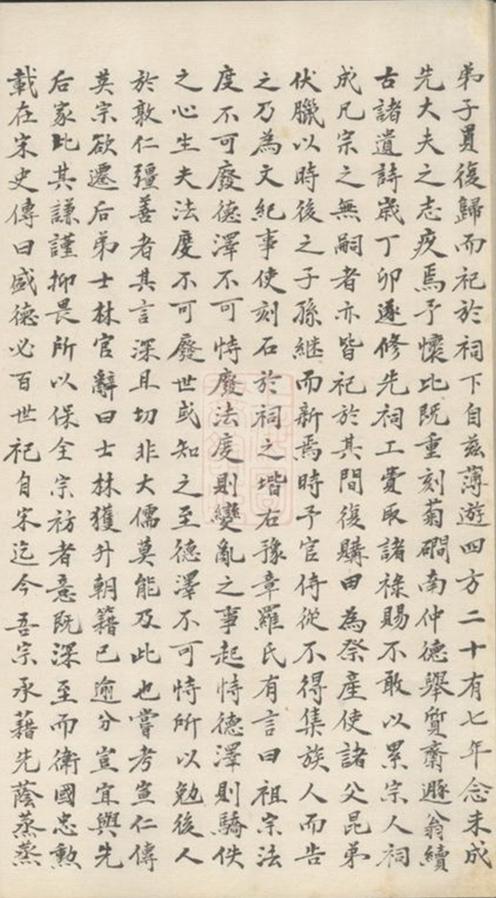 弟子員復歸而祀於祠下自茲薄遊四方二十有七年念未成
先大夫之志疚焉予懷比既重刻菊磵南仲德舉質齋遯翁續
古諸遺詩歲丁卯遂修先祠工費取諸祿賜不敢以累宗人祠
成凡宗之無嗣者亦皆祀於其間復購田為祭產使諸父昆弟
伏臘以時後之子孫継而新焉時予官侍從不得集族人而告
之乃為文紀事使刻石於祠之堦右豫章羅氏有言曰祖宗法
度不可廢德澤不可恃廢法度則變亂之事起恃德澤則驕佚
之心生夫法度不可廢世或知之至德澤不可恃所以勉後人
於敦仁彊善者其言深且切非大儒莫能及此也嘗考宣仁傳
英宗欲遷后弟士林官辭曰士林獲升朝籍已逾分豈宜與先
后家比其謙謹抑畏所以保全宗祊者意既深至而衛國忠勲
載在宋史傳曰盛德必百世祀自宋迄今吾宗承藉先蔭蒸蒸